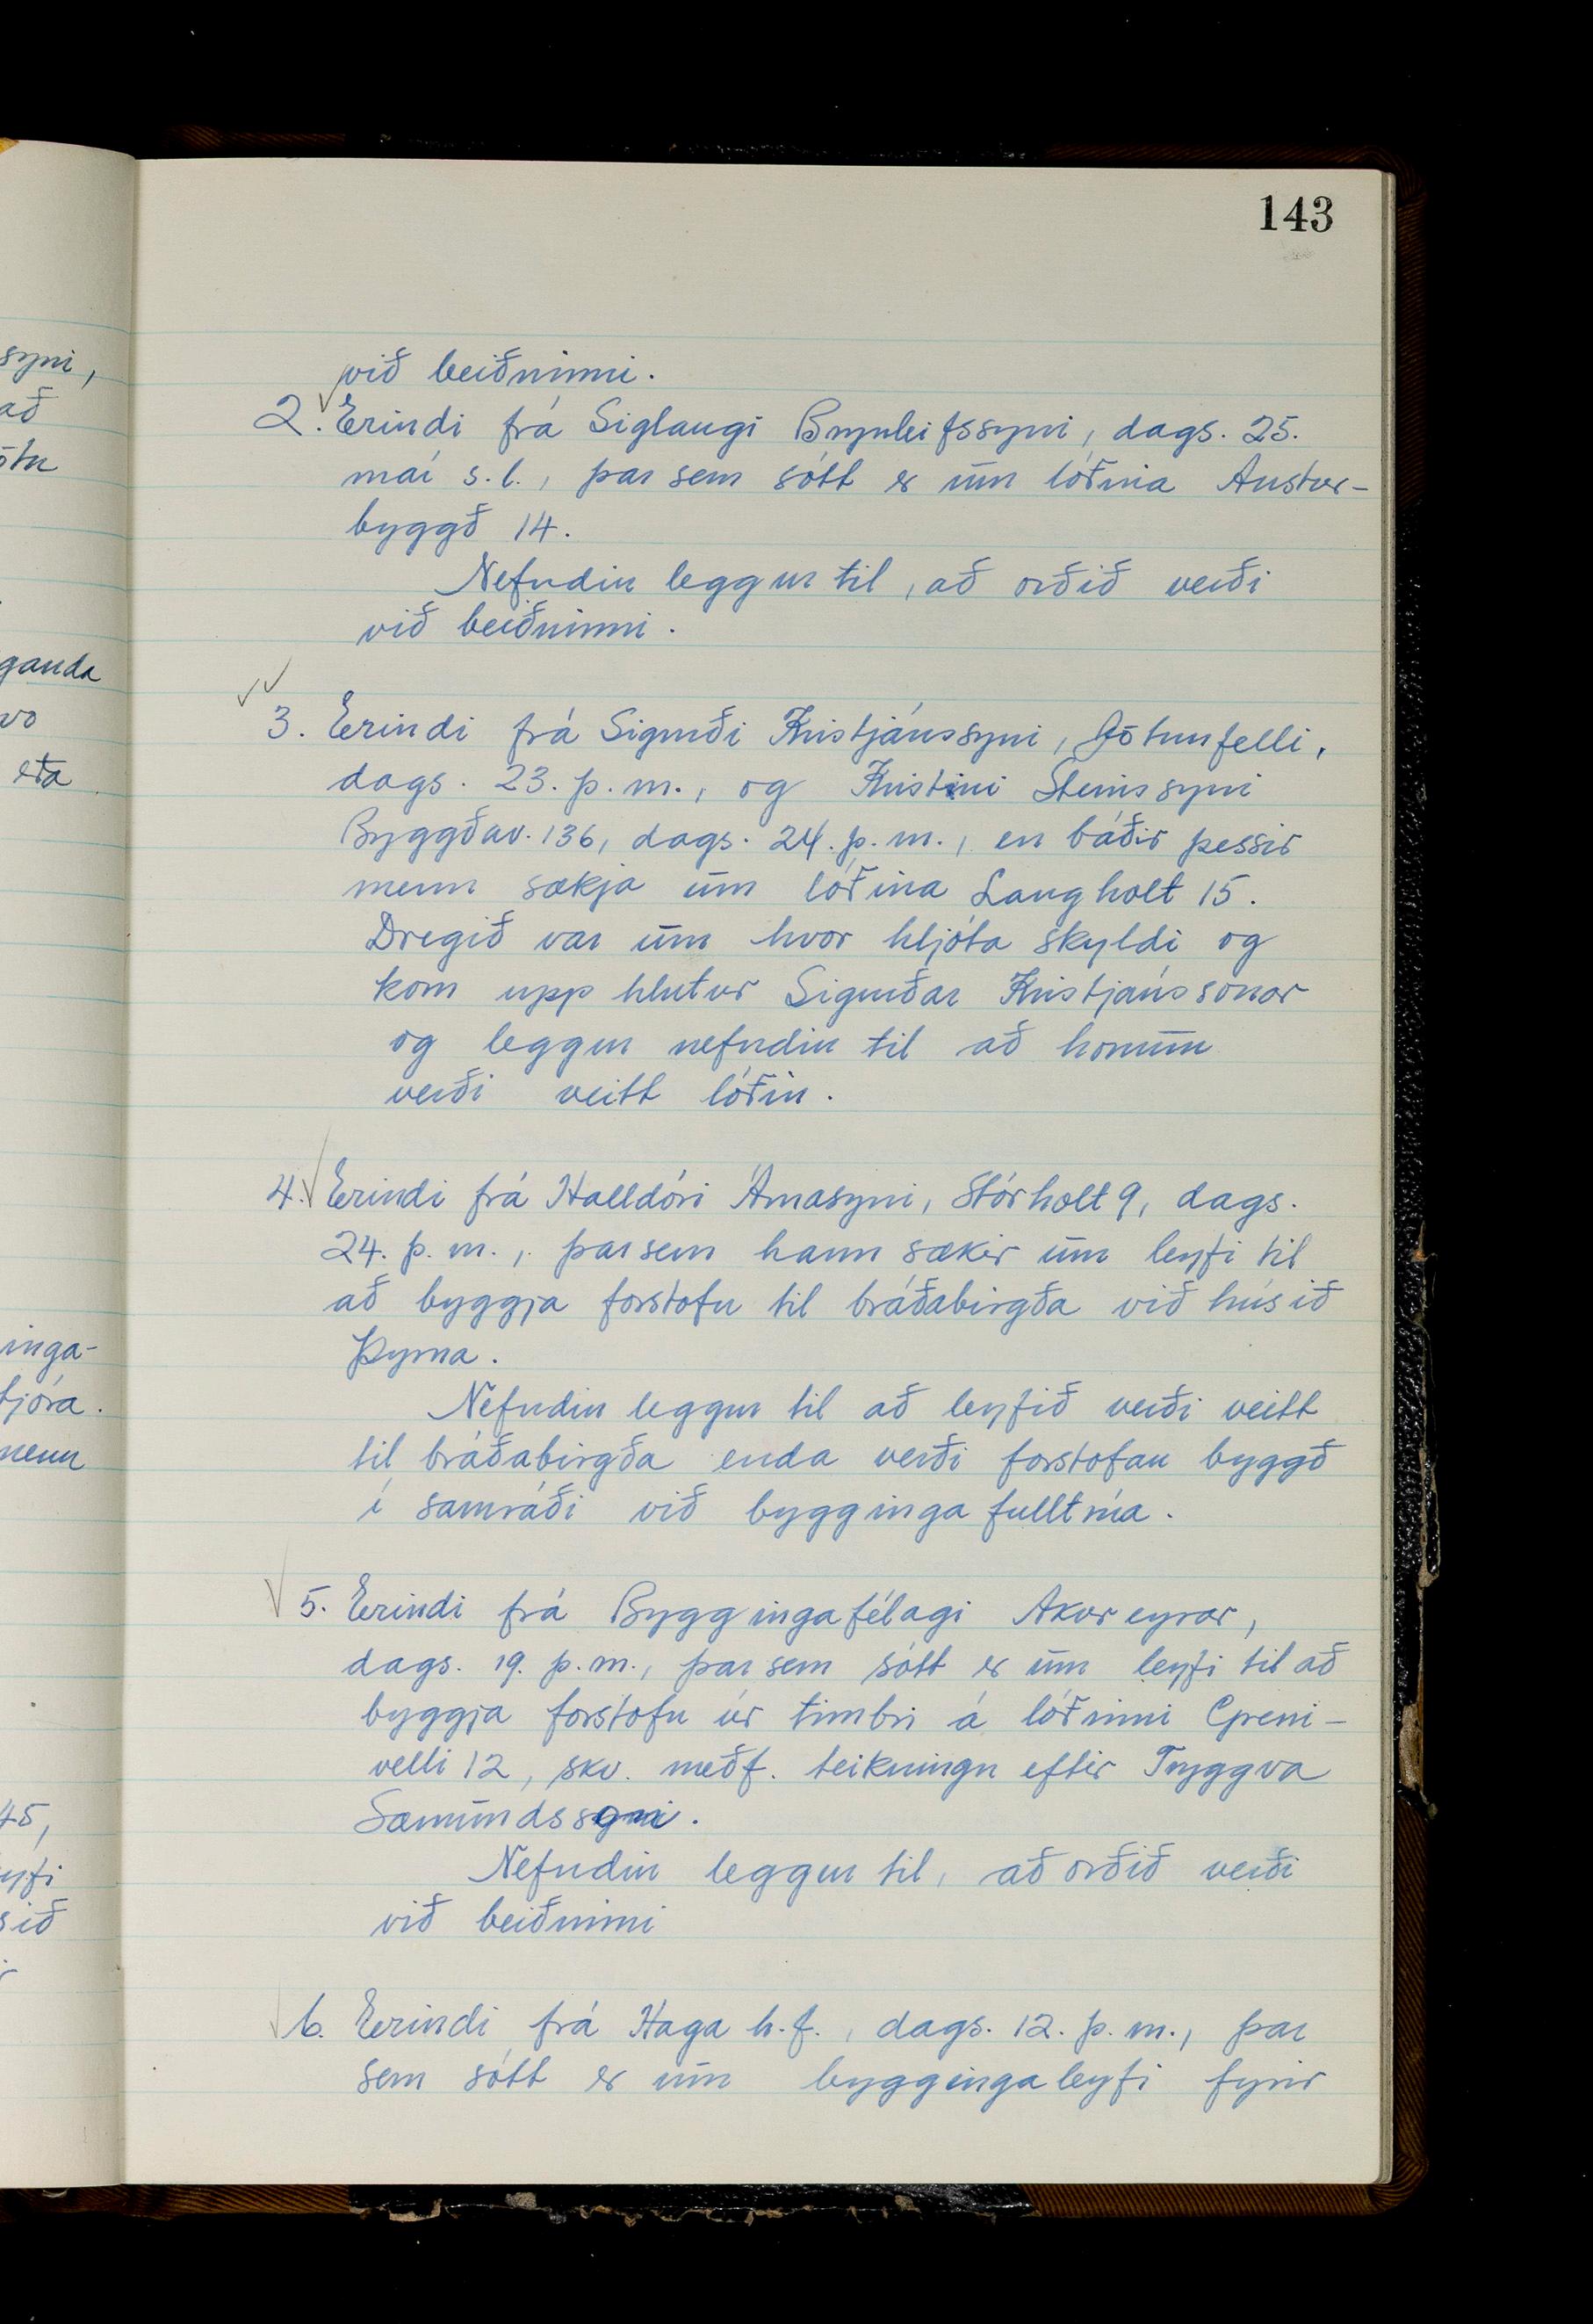 143
við beiðninni.
2. Erindi frá Siglaugi Brynleifssyni, dags. 25.
maí s.l., þar sem sótt er um lóðina Austur-
byggð 14.
Nefndin leggur til, að orðið verði
við beiðninni.
3. Erindi frá Sigurði Kristjánssyni, Jötunfelli,
dags. 23. þ.m., og Kristini Steinssyni
Byggðav. 136, dags. 24. þ.m., en báðir þessir
menn sækja um lóðina Langholt 15.
Dregið var um hvor hljóta skyldi og
kom upp hlutur Sigurðar Kristjánssonar
og leggur nefndin til að honum
verði veitt lóðin.
4. Erindi frá Halldóri Árnasyni, Stórholt 9, dags.
24. þ.m., þar sem hann sækir um leyfi til
að byggja forstofu til bráðabirgða við húsið
Þyrna.
Nefndin leggur til að leyfið verði veitt
til bráðabirgða enda verði forstofan byggð
í samráði við byggingafulltrúa.
5. Erindi frá Byggingafélagi Akureyrar,
dags. 19. þ.m., þar sem sótt er um leyfi til að
byggja forstofu úr timbri á lóðinni Greni-
velli 12, skv. meðf. teikningu eftir Tryggva
Sæmundsson.
Nefndin leggur til, að orðið verði
við beiðninni
6. Erindi frá Haga h.f., dags. 12. þ.m., þar
sem sótt er um byggingaleyfi fyrir